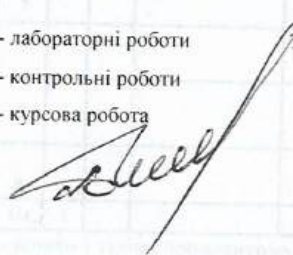 - лабораторні роботи
- контрольні роботи
- курсова робота